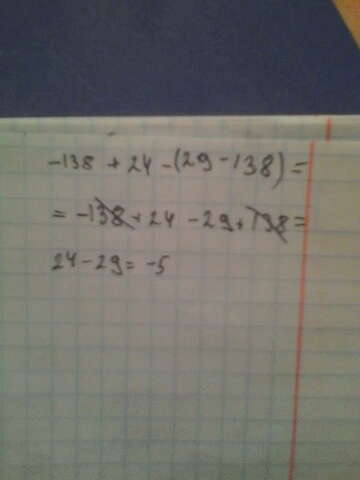 -138 + 24 - (29 - 138) =
= -138 + 24 - 29 + 138 =
24 - 29 = -5